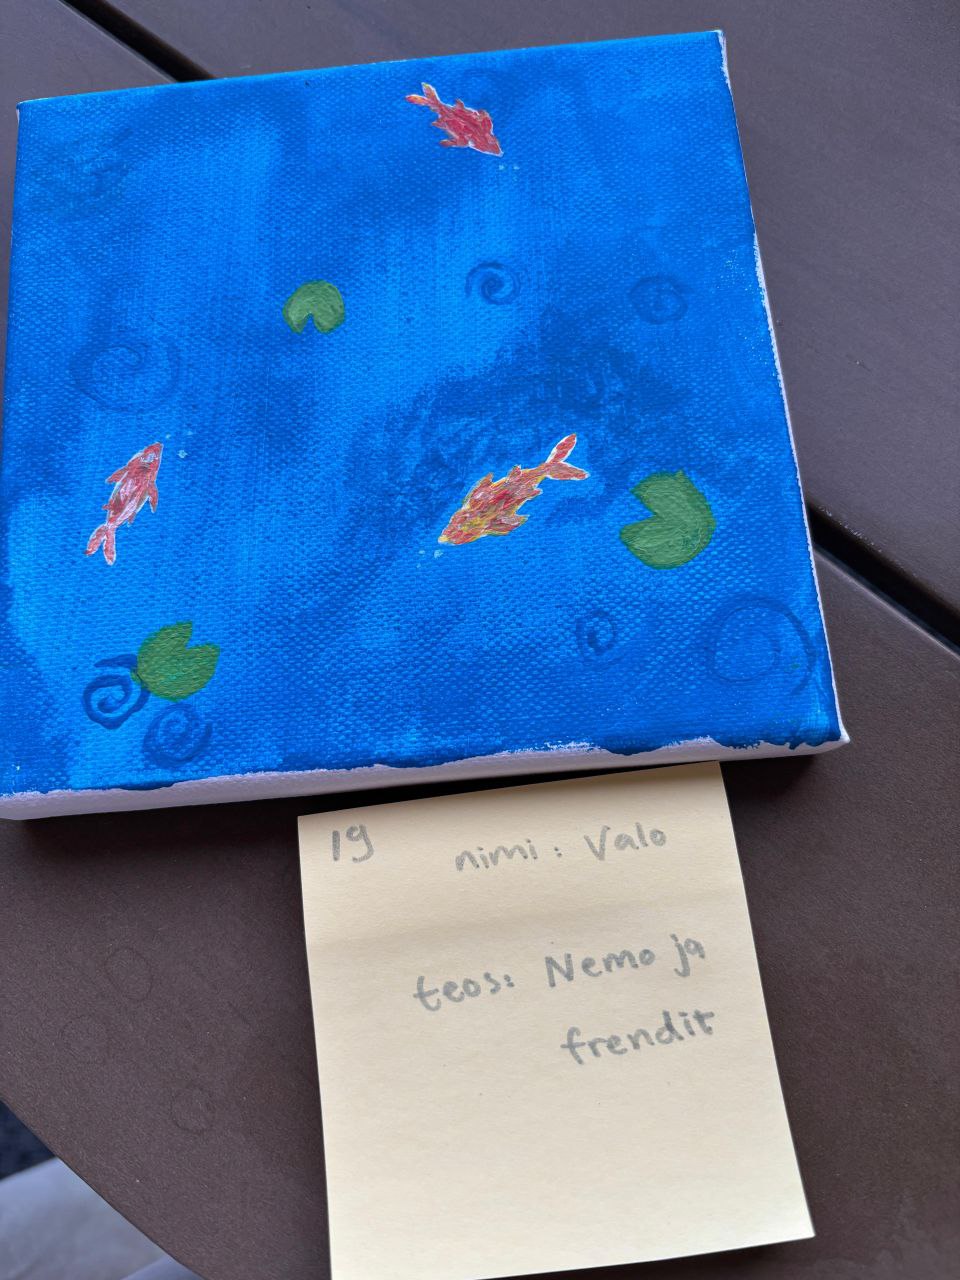 19 nimi: Valo
teos: Nemo ja
frendit